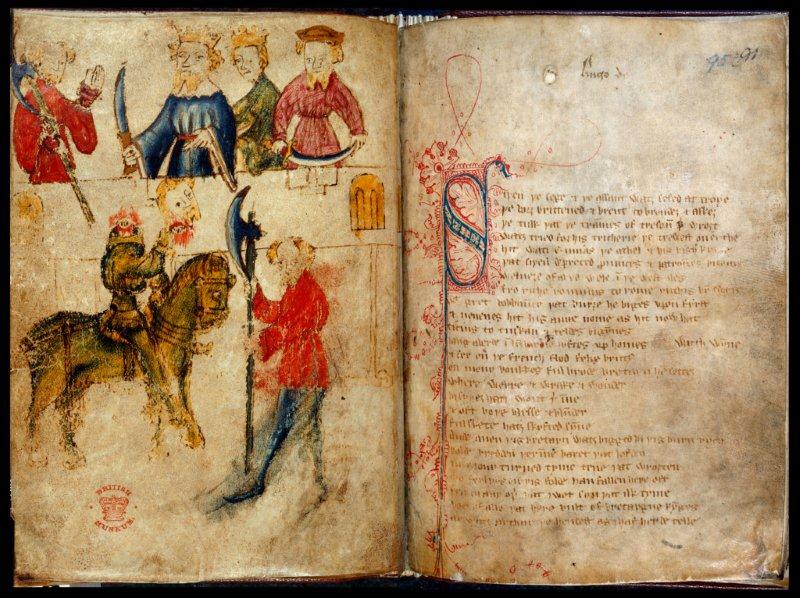 BRITISH
MUSEUM
Hugo de
95 91
SIÞEN þe sege & þe assaut watz sesed at troye
þe borȝ brittened & brent to brondeȝ & askez
þe tulk þat þe trammes of tresoun þer wroȝt
watz tried for his tricherie þe trewest on erthe
hit watz ennias þe athel & his highe kynde
þat siþen depreced prouinces & patrounes bicome
welneȝe of al þe wele in þe west iles
fro riche romulus to rome ricchis hym swyþe
gret bobbaunce þat burȝe he biges vpon fyrst
& neuenes hit his aune nome as hit now hat
ticius to tuskan & teldes bigynnes
langaberde in lumbardie lyftes vp homes wyth wynne
& fer ouer þe french flod felix brutus
on mony bonkkes ful brode bretayn he settez
where werre & wrake & wonder
bi syþez hatz wont þer inne
& oft boþe blysse & blunder
ful skete hatz skyfted synne
Ande quen þis bretayn watz bigged bi þis burn rych
bolde bredden þer inne baret þat lofden
in mony turned tyme tene þat wroȝten
mo ferlyes on þis folde han fallen here oft
þen in any oþer þat I wot syn þat ilk tyme
bot of alle þat here bult of bretaygne kynges
ay watz arthur þe hendest as I haf herde telle